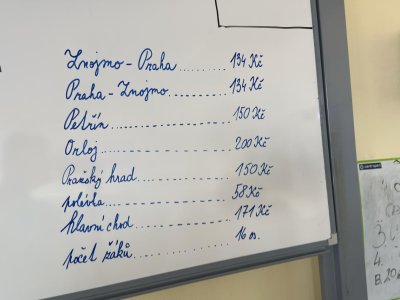 Znojmo - Praha ........ 134 Kč
Praha - Znojmo ........ 134 Kč
Petřín ........ 150 Kč
Orloj ........ 200 Kč
Pražský hrad ........ 150 Kč
polévka ........ 58 Kč
hlavní chod ........ 171 Kč
počet žáků ........ 16 os.
3.
4.